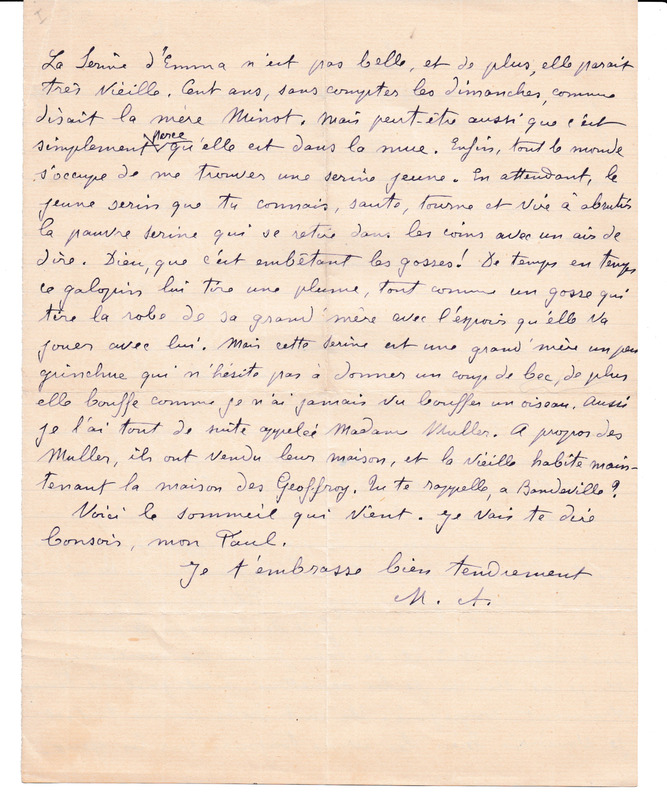 La Serine d'Emma n'est pas belle, et de plus, elle parait
très vieille. Cent ans, sans compter les dimanches, comme
disait la mère Minot. Mais peut-être aussi que c'est
simplement parce qu'elle est dans la mue. Enfin, tout le monde
s'occupe de me trouver une serine jeune. En attendant, le
jeune serin que tu connais, saute, tourne et vire à abrutir
la pauvre serine qui se retire dans les coins avec un air de
dire. Dieu, que c'est embêtant les gosses! De temps en temps
ce galopin lui tire une plume, tout comme un gosse qui
tire la robe de sa grand'mère avec l'espoir qu'elle va
jouer avec lui. Mais cette serine est une grand'mère un peu
grinchue qui n'hésite pas à donner un coup de bec, de plus
elle bouffe comme je n'ai jamais vu bouffer un oiseau. Aussi
je l'ai tout de suite appelée Madame Muller. A propos des
Muller, ils ont vendu leur maison, et la vieille habite main-
tenant la maison des Geoffroy. Tu te rappelle, a Bandeville?
Voici le sommeil qui vient. Je vais te dire
bonsoir, mon Paul.
Je t'embrasse bien tendrement
M. A.